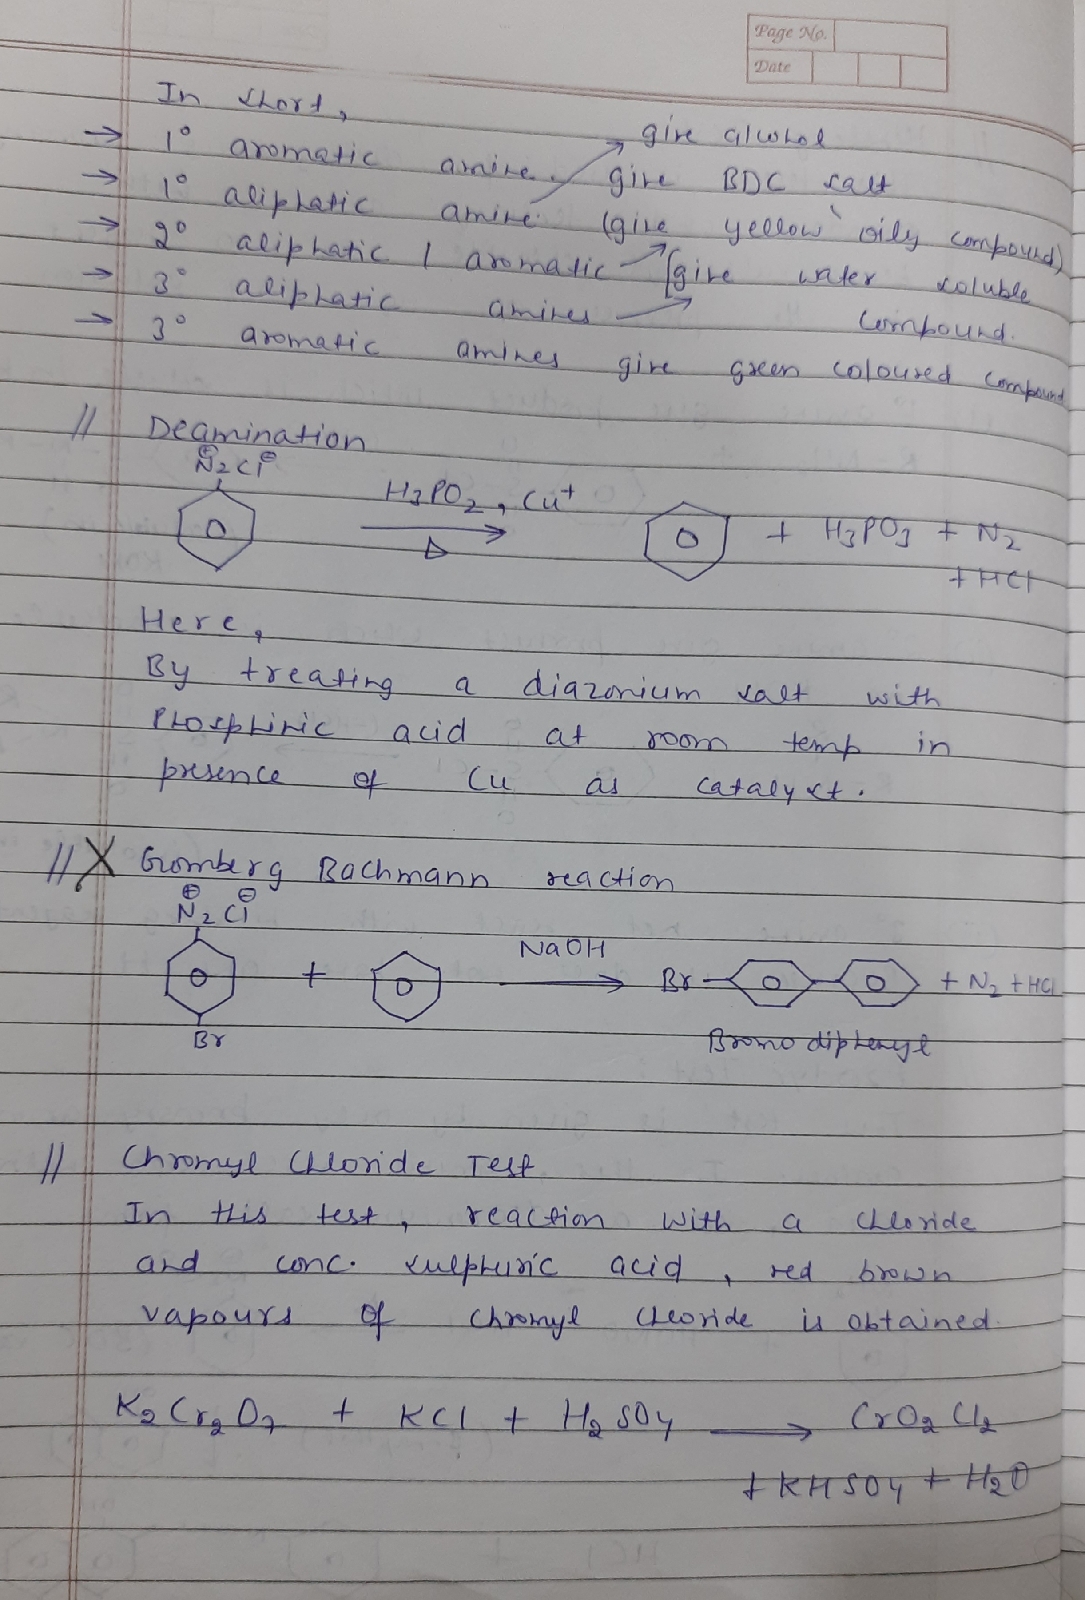 Page No.
Date
In short,
→ 1° aromatic amine give alcohol
→ 1° aliphatic amine. give BDC salt
→ 2° aliphatic / aromatic (give yellow oily compound)
→ 3° aliphatic amines [give water soluble compound.
→ 3° aromatic amines give green coloured compound
// Deamination
N₂⊕Cl⊖
H3PO2, Cu+
Δ
+ H3PO3 + N2
+ HCl
Here,
By treating a diazonium salt with
Phosphinic acid at room temp in
presence of Cu as catalyst.
// X Gromberg Bachmann reaction
N₂⊕ Cl⊖
+ NaOH → Br + N2 + HCl
Br
Bromo diphenyl
// Chromyl Chloride Test
In this test, reaction with a chloride
and conc. sulphuric acid, red brown
vapours of chromyl chloride is obtained.
K2Cr2O7 + KCl + H2SO4 → CrO2Cl2
+ KHSO4 + H2O